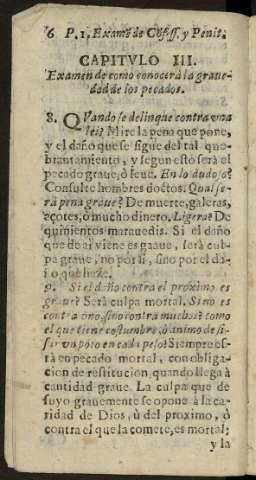 6 P. 1. Examē de Cōfess. y Penit.
CAPITVLO III.
Examen de como conocerà la graue-
dad de los pecados.
8. QVando se delinque contra vna
lei? Mire la pena que pone,
y el daño que se sigue del tal que-
brantamiento, y segun esto serà el
pecado graue, ò leue. En lo dudoso?
Consulte hombres doctos. Qual se-
rà pena graue? De muerte, galeras,
açotes, ò mucho dinero. Ligera? De
quinientos marauedis. Si el daño
que de ai viene es graue, serà cul-
pa graue, no por si, sino por el da-
ño que haze.
9. Si el daño contra el proximo es
graue? Serà culpa mortal. Si no es
contra vno, sino contra muchos? como
el que tiene costumbre, ò animo de si-
sar vn poco en cada peso? Siempre es-
tà en pecado mortal, con obliga-
cion de restitucion, quando llega à
cantidad graue. La culpa que de
suyo grauemente se opone à la ca-
ridad de Dios, ù del proximo, ò
contra el que la comete, es mortal;
y la